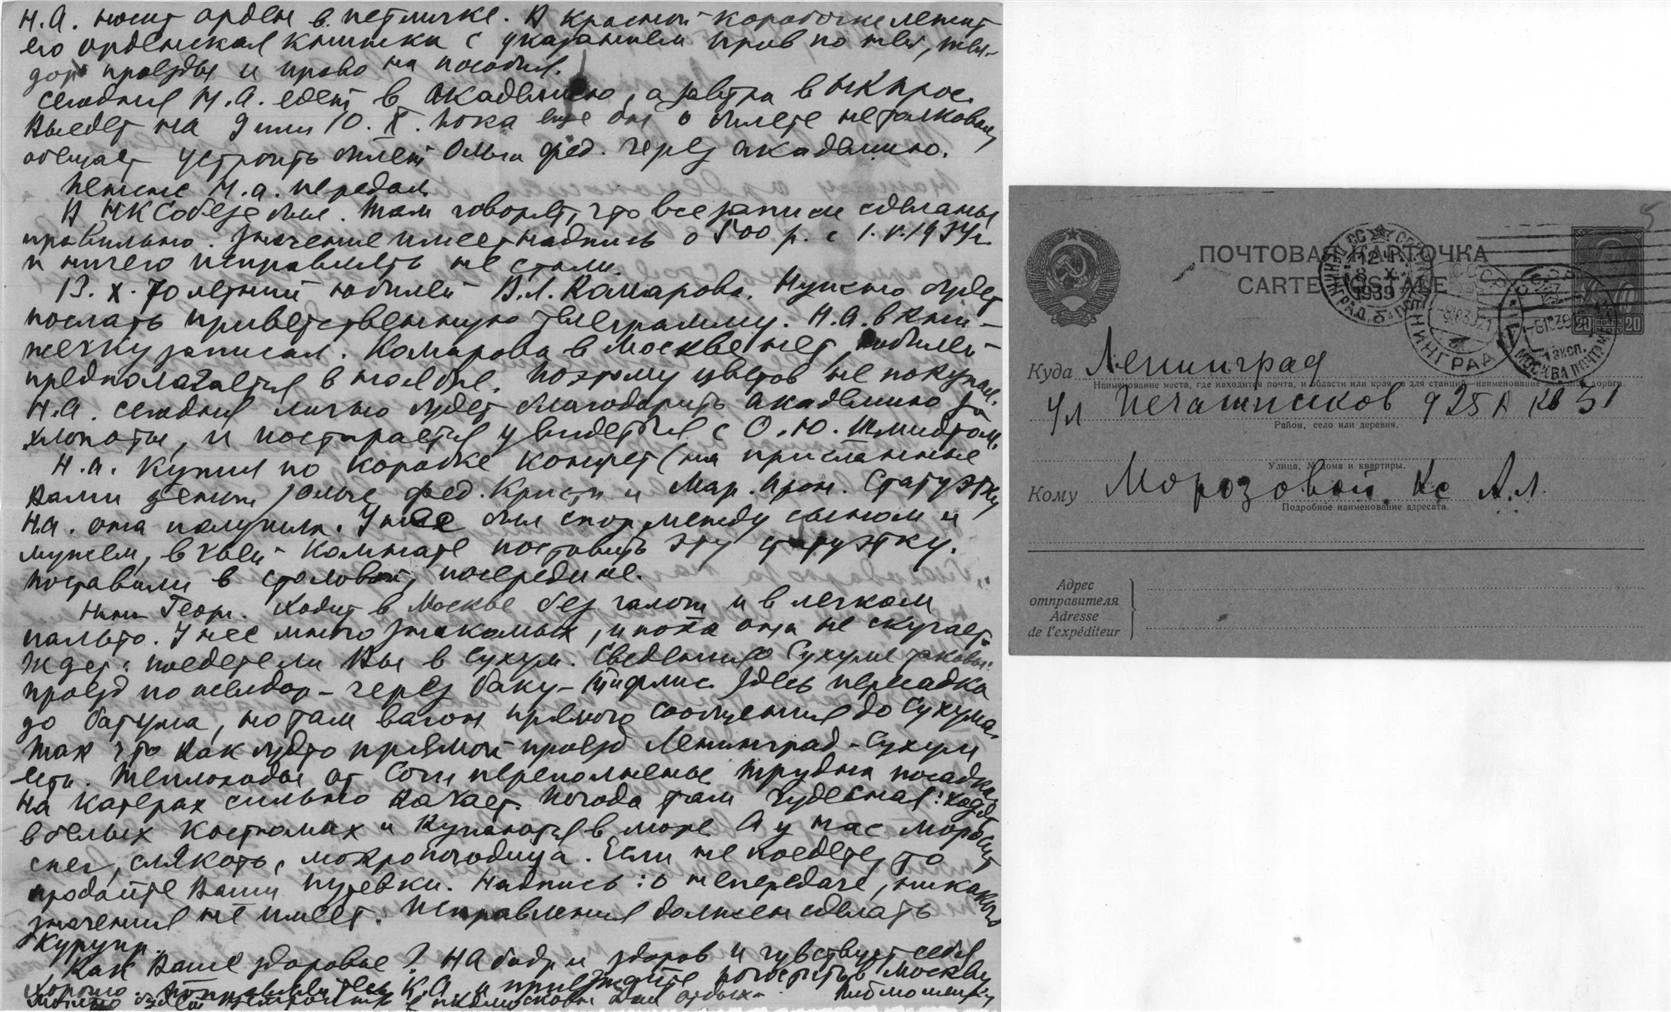 Н.А. носит орден в петличке. В красной коробочке лежит
его орденская книжка с указанием прав по жел, жел-
дор проезды и право на пособия.
Сегодня Н.А. едет в академию, а завтра в Нкпрос.
Выедет на 9 или 10. X. Пока еще он о билете не толковал,
обещает устроить билет Ольги Фед. через академию.
Н.А. передал
В НКСобезе был. Там говорят, что все записи сделаны
правильно. Значение имеет надпись о 500 р. с 1.V.1937г.
и ничего исправлять не стали.
13. X. 70 летний юбилей В.Л. Комарова. Нужно будет
послать приветственную телеграмму. Н.А. в кни-
жечку записал. Комарова в Москве нет, юбилей
предполагается в ноябре. Поэтому цветов не покупал.
Н.А. сегодня лично будет благодарить академию за
хлопоты, и постарается увидеться с О.Ю. Шмидтом.
Н.А. купил по коробке конфет (на присланные
Вами деньги) Ольге Фед. Кристи и Мар. Арон. Статуэтку
Н.А. она получила. У нее был спор между сыном и
мужем, в чьей комнате поставить эту статуэтку.
Поставили в столовой, посередине.
Нина Георг. ходит в Москве без галош и в легком
пальто. У нее много знакомых, и пока она не скучает.
Ждет: поедете ли Вы в Сухум. Сведения о Сухуме таковы:
проезд по желдор – через Баку – Тифлис. Здесь пересадка
до Батума, но там вагон прямого сообщения до Сухума.
Так что как будто прямой проезд Ленинград – Сухуми
есть. Теплоходы от Сочи переполнены трудна посадка,
на катерах сильно качает. Погода там чудесная: ходят
в белых костюмах и купаются в море. А у нас моросит
снег, слякоть, мокропогодица. Если не поедете, то
продайте Ваши путевки. Надпись: о непередаче, никакого
значения не имеет. Исправления должен сделать
Курупр.
Как Ваше здоровье? НА бодр и здоров и чувствует себя
хорошо. К.А. и приезжайте погостить в Москву
отдыха
ПОЧТОВАЯ КАРТОЧКА
CARTE POSTALE
20 20
ЛЕНИНГРАД
1939
МОСКВА
Куда Ленинград
Наименование места, где находится почта, и области или края, а для станций наименование дороги.
Ул Печатников д 25А кв 51
Район, село или деревня.
Улица, № дома и квартиры.
Кому Морозовой Кс А.Л.
Подробное наименование адресата.
Адрес
отправителя
Adresse
de l'expéditeur